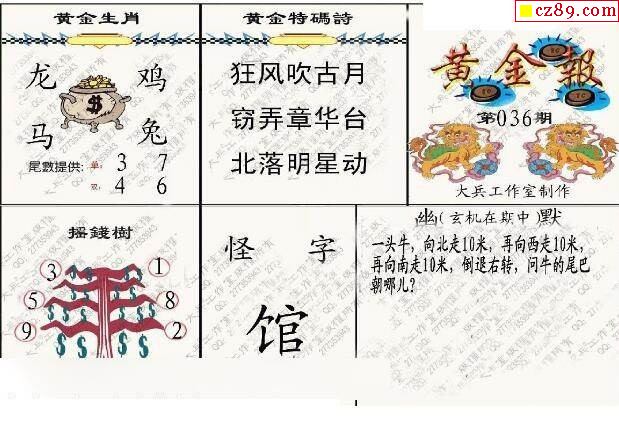 cz89.com
黄金生肖
龙 鸡
马 兔
$
尾數提供: 单: 3 7
双: 4 6
黄金特碼詩
狂风吹古月
窃弄章华台
北落明星动
黄金報
第036期
大兵工作室制作
摇錢樹
3 1
5 8
9 2
$ $ $ $
怪 字
馆
幽(玄机在期中)默
一头牛，向北走10米，再向西走10米，
再向南走10米，倒退右转，问牛的尾巴
朝哪儿？